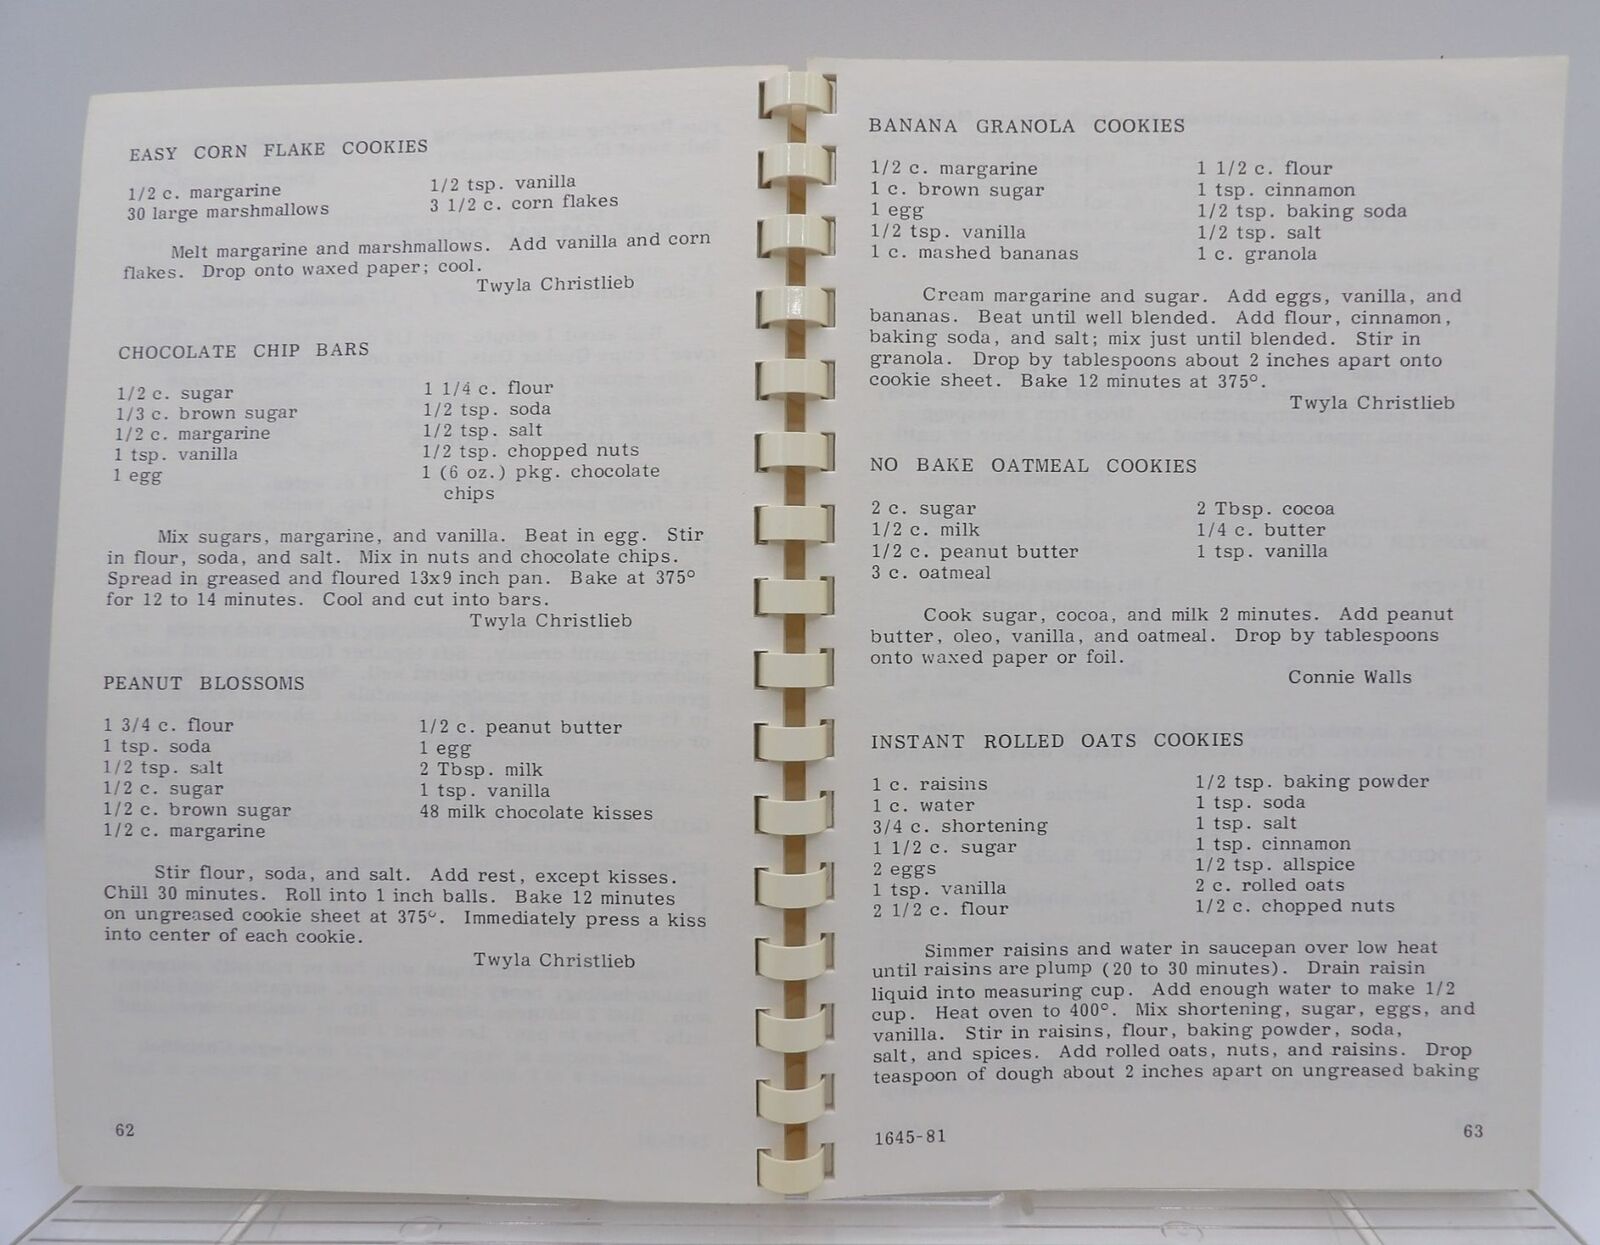 EASY CORN FLAKE COOKIES
1/2 c. margarine
30 large marshmallows
1/2 tsp. vanilla
3 1/2 c. corn flakes
Melt margarine and marshmallows. Add vanilla and corn
flakes. Drop onto waxed paper; cool.
Twyla Christlieb
CHOCOLATE CHIP BARS
1/2 c. sugar
1/3 c. brown sugar
1/2 c. margarine
1 tsp. vanilla
1 egg
1 1/4 c. flour
1/2 tsp. soda
1/2 tsp. salt
1/2 tsp. chopped nuts
1 (6 oz.) pkg. chocolate
chips
Mix sugars, margarine, and vanilla. Beat in egg. Stir
in flour, soda, and salt. Mix in nuts and chocolate chips.
Spread in greased and floured 13x9 inch pan. Bake at 375°
for 12 to 14 minutes. Cool and cut into bars.
Twyla Christlieb
PEANUT BLOSSOMS
1 3/4 c. flour
1 tsp. soda
1/2 tsp. salt
1/2 c. sugar
1/2 c. brown sugar
1/2 c. margarine
1/2 c. peanut butter
1 egg
2 Tbsp. milk
1 tsp. vanilla
48 milk chocolate kisses
Stir flour, soda, and salt. Add rest, except kisses.
Chill 30 minutes. Roll into 1 inch balls. Bake 12 minutes
on ungreased cookie sheet at 375°. Immediately press a kiss
into center of each cookie.
Twyla Christlieb
62
BANANA GRANOLA COOKIES
1/2 c. margarine
1 c. brown sugar
1 egg
1/2 tsp. vanilla
1 c. mashed bananas
1 1/2 c. flour
1 tsp. cinnamon
1/2 tsp. baking soda
1/2 tsp. salt
1 c. granola
Cream margarine and sugar. Add eggs, vanilla, and
bananas. Beat until well blended. Add flour, cinnamon,
baking soda, and salt; mix just until blended. Stir in
granola. Drop by tablespoons about 2 inches apart onto
cookie sheet. Bake 12 minutes at 375°.
Twyla Christlieb
NO BAKE OATMEAL COOKIES
2 c. sugar
1/2 c. milk
1/2 c. peanut butter
3 c. oatmeal
2 Tbsp. cocoa
1/4 c. butter
1 tsp. vanilla
Cook sugar, cocoa, and milk 2 minutes. Add peanut
butter, oleo, vanilla, and oatmeal. Drop by tablespoons
onto waxed paper or foil.
Connie Walls
INSTANT ROLLED OATS COOKIES
1 c. raisins
1 c. water
3/4 c. shortening
1 1/2 c. sugar
2 eggs
1 tsp. vanilla
2 1/2 c. flour
1/2 tsp. baking powder
1 tsp. soda
1 tsp. salt
1 tsp. cinnamon
1/2 tsp. allspice
2 c. rolled oats
1/2 c. chopped nuts
Simmer raisins and water in saucepan over low heat
until raisins are plump (20 to 30 minutes). Drain raisin
liquid into measuring cup. Add enough water to make 1/2
cup. Heat oven to 400°. Mix shortening, sugar, eggs, and
vanilla. Stir in raisins, flour, baking powder, soda,
salt, and spices. Add rolled oats, nuts, and raisins. Drop
teaspoon of dough about 2 inches apart on ungreased baking
1645-81
63